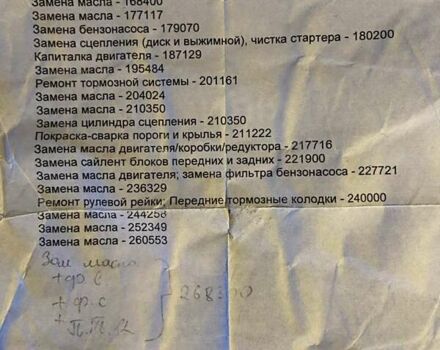 Замена масла - 168400
Замена масла - 177117
Замена бензонасоса - 179070
Замена сцепления (диск и выжимной), чистка стартера - 180200
Капиталка двигателя - 187129
Замена масла - 195484
Ремонт тормозной системы - 201161
Замена масла - 204024
Замена масла - 210350
Замена цилиндра сцепления - 210350
Покраска-сварка пороги и крылья - 211222
Замена масла двигателя/коробки/редуктора - 217716
Замена сайлент блоков передних и задних - 221900
Замена масла двигателя; замена фильтра бензонасоса - 227721
Замена масла - 236329
Ремонт рулевой рейки; Передние тормозные колодки - 240000
Замена масла - 244258
Замена масла - 252349
Замена масла - 260553
Зам масла
+ ф
+ ф. с
+